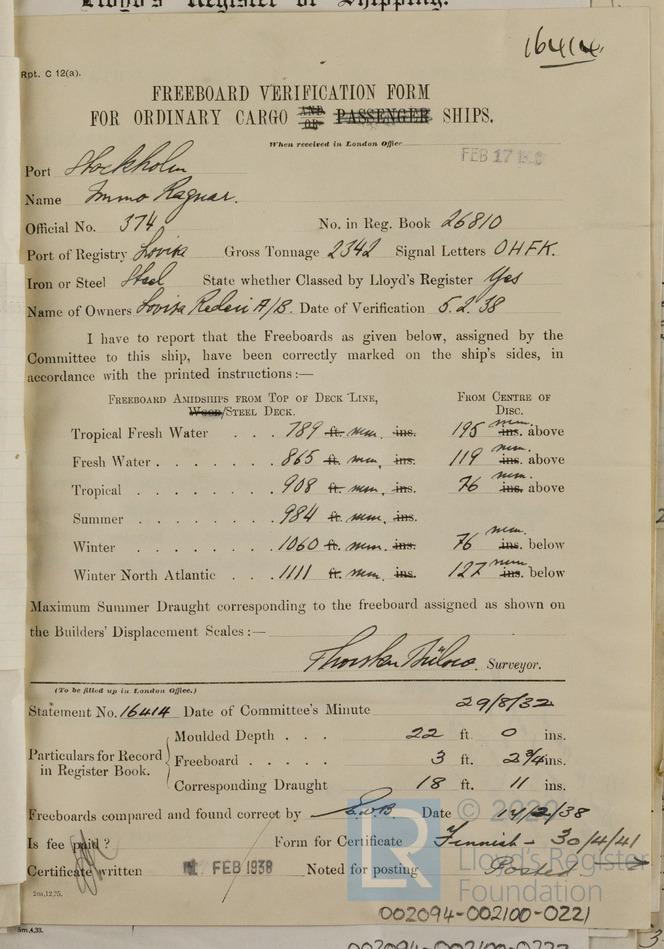 Lloyd's Register of Shipping.
16414
Rpt. C 12(a).
FREEBOARD VERIFICATION FORM
FOR ORDINARY CARGO AND OR PASSENGER SHIPS.
When received in London Office
FEB 17 1938
Port Stockholm
Name Immo Ragnar.
Official No. 374 No. in Reg. Book 26810
Port of Registry Lovisa Gross Tonnage 2342 Signal Letters OHFK.
Iron or Steel Steel State whether Classed by Lloyd's Register Yes
Name of Owners Lovisa Rederi A/B. Date of Verification 5.2.38
I have to report that the Freeboards as given below, assigned by the
Committee to this ship, have been correctly marked on the ship's sides, in
accordance with the printed instructions:—
FREEBOARD AMIDSHIPS FROM TOP OF DECK LINE, FROM CENTRE OF
WOOD/STEEL DECK. DISC.
Tropical Fresh Water . . . 789 ft. mm. ins. 195 mm. ins. above
Fresh Water . . . . . . . 865 ft. mm. ins. 119 mm. ins. above
Tropical . . . . . . . . 908 ft. mm. ins. 76 mm. ins. above
Summer . . . . . . . . 984 ft. mm. ins.
Winter . . . . . . . . 1060 ft. mm. ins. 76 mm. ins. below
Winter North Atlantic . . . 1111 ft. mm. ins. 127 mm. ins. below
Maximum Summer Draught corresponding to the freeboard assigned as shown on
the Builders' Displacement Scales:—
Surveyor.
(To be filled up in London Office.)
Statement No. 16414 Date of Committee's Minute 29/8/32
Particulars for Record in Register Book.
Moulded Depth . . . 22 ft. 0 ins.
Freeboard . . . . . 3 ft. 2¾ ins.
Corresponding Draught 18 ft. 11 ins.
Freeboards compared and found correct by Date 17/2/38
Is fee paid? Form for Certificate Finnish - 30/4/41
Certificate written FEB 1938 Noted for posting Posted
2m,12,25.
5m,4,33.
© 2022
LR
Lloyd's Register
Foundation
002094-002100-0221